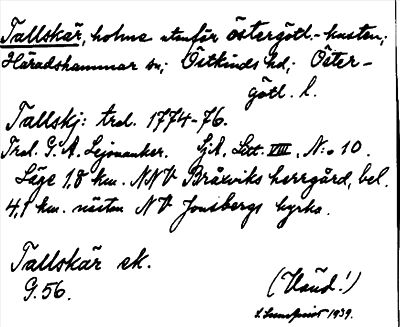 Tallskär, holme utanför östergötl.-kusten;
Häradshammar sn; Östkinds hd; Öster-
götl. l.
Tallskj: trol. 1774-76.
Trol. G. A. Lejonanker. Sjk, Litt. VIII, N:o 10.
Läge 1,8 km. NNV Bråxviks herrgård, bel.
4,1 km. nästan NV Jonsbergs kyrka.
Tallskär sk.
G. 56.
(Vänd!)
1939.